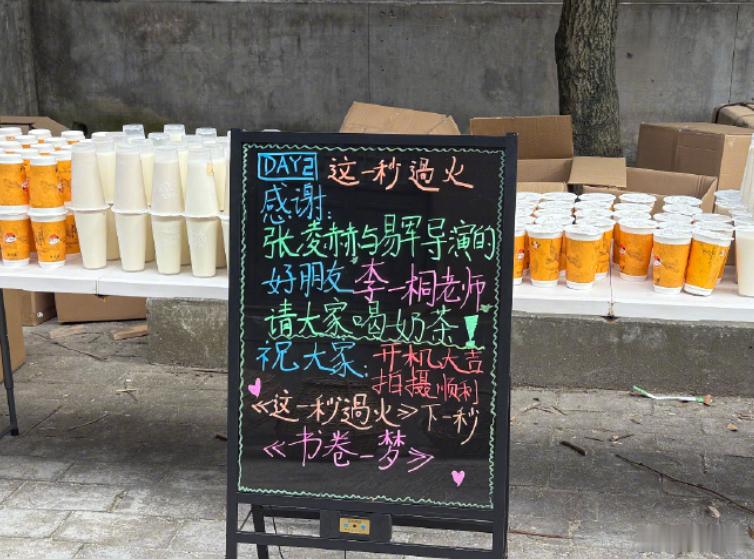 DAY2 这一秒過火
感谢:
张凌赫与易军导演的
好朋友李一桐老师
请大家喝奶茶!
祝大家:开机大吉
拍摄顺利
《这一秒過火》下一秒
《书卷一梦》